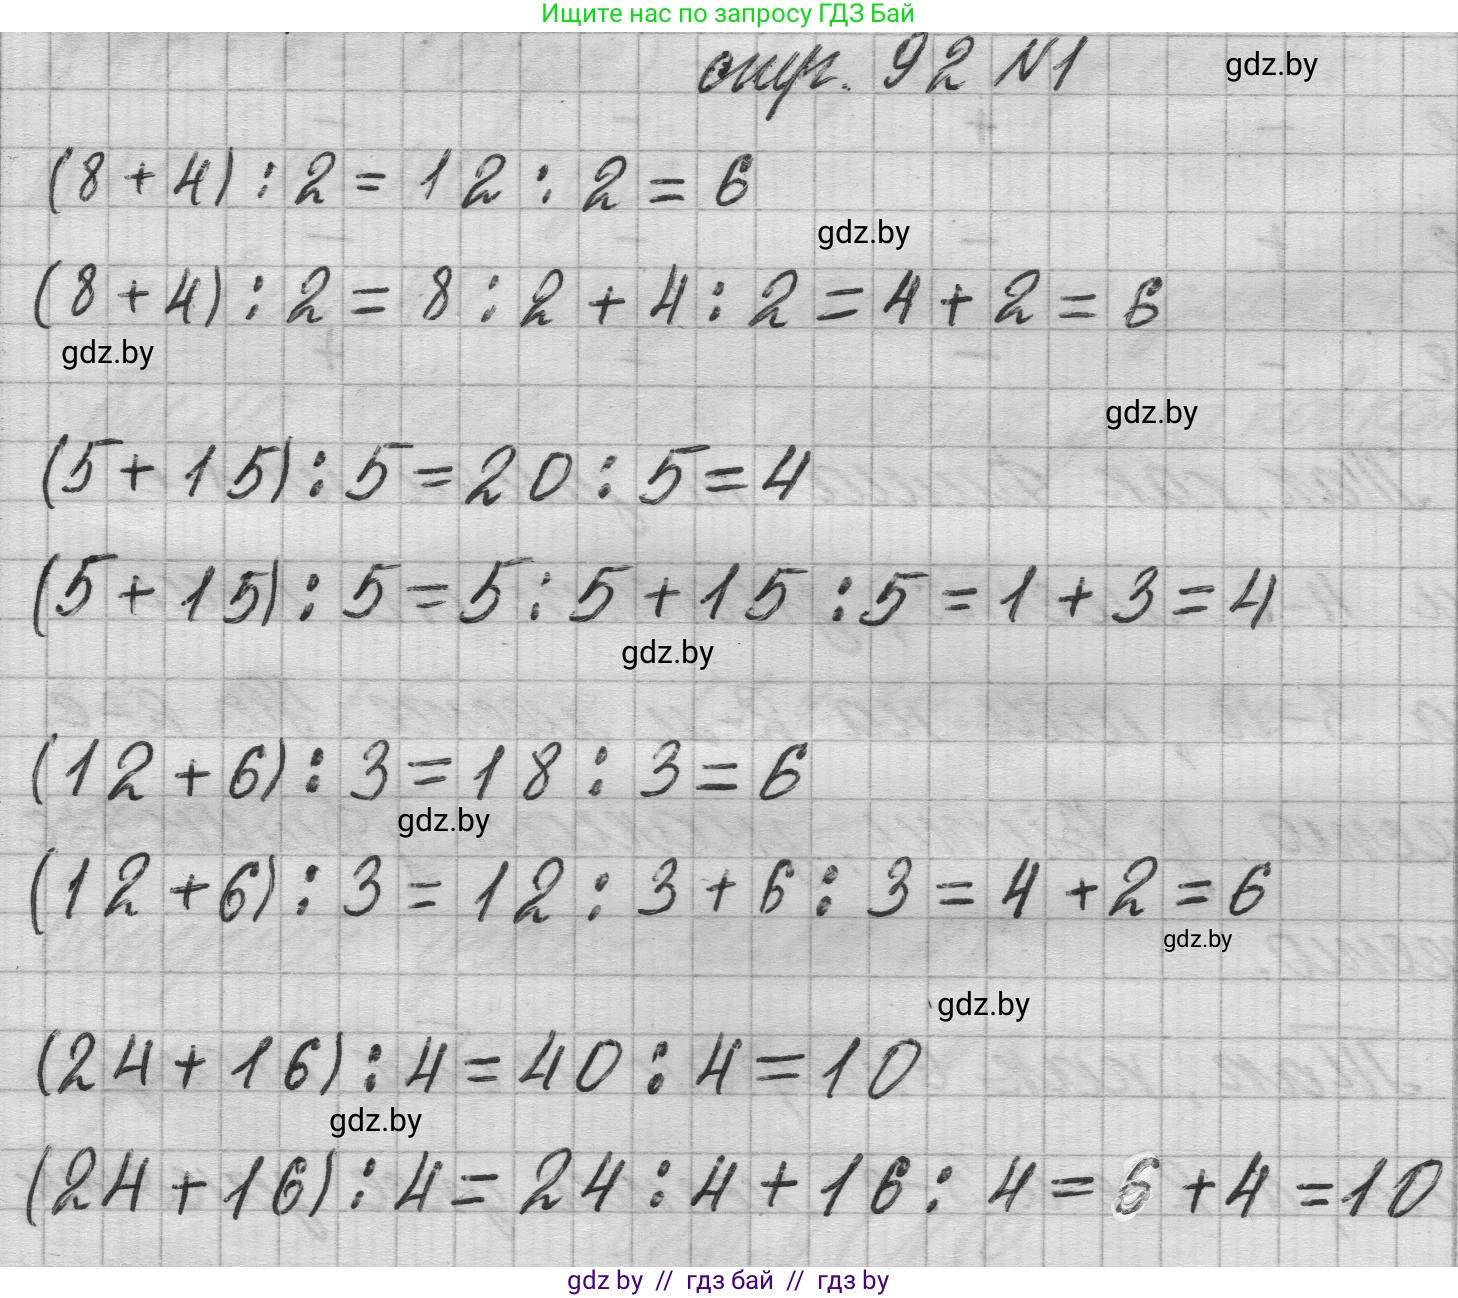 Ищите нас по запросу ГДЗ Бай
стр. 92 №1
gdz.by
(8 + 4) : 2 = 12 : 2 = 6
gdz.by
(8 + 4) : 2 = 8 : 2 + 4 : 2 = 4 + 2 = 6
gdz.by
gdz.by
(5 + 15) : 5 = 20 : 5 = 4
(5 + 15) : 5 = 5 : 5 + 15 : 5 = 1 + 3 = 4
gdz.by
(12 + 6) : 3 = 18 : 3 = 6
gdz.by
(12 + 6) : 3 = 12 : 3 + 6 : 3 = 4 + 2 = 6
gdz.by
gdz.by
(24 + 16) : 4 = 40 : 4 = 10
gdz.by
(24 + 16) : 4 = 24 : 4 + 16 : 4 = 6 + 4 = 10
gdz by // гдз бай // гдз by